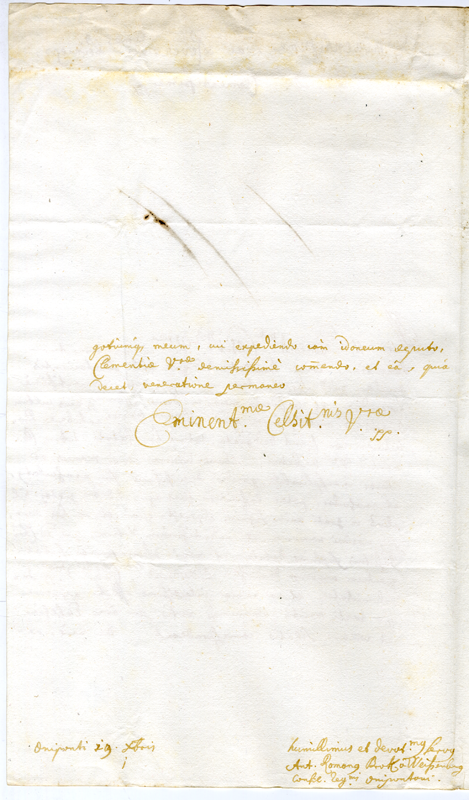 gotiumq; meum, cui expediendo iam idoneum reputo,
Clementiæ Vræ demississimè comendo, et eâ, quâ
decet veneratione permaneo
Eminent.mæ Celsit.nis Vræ
pp.
Oniponti 29. Xbris
humillimus et devot.mg servg
Ant. Romang
Cons. Reg.mi Onipontani.